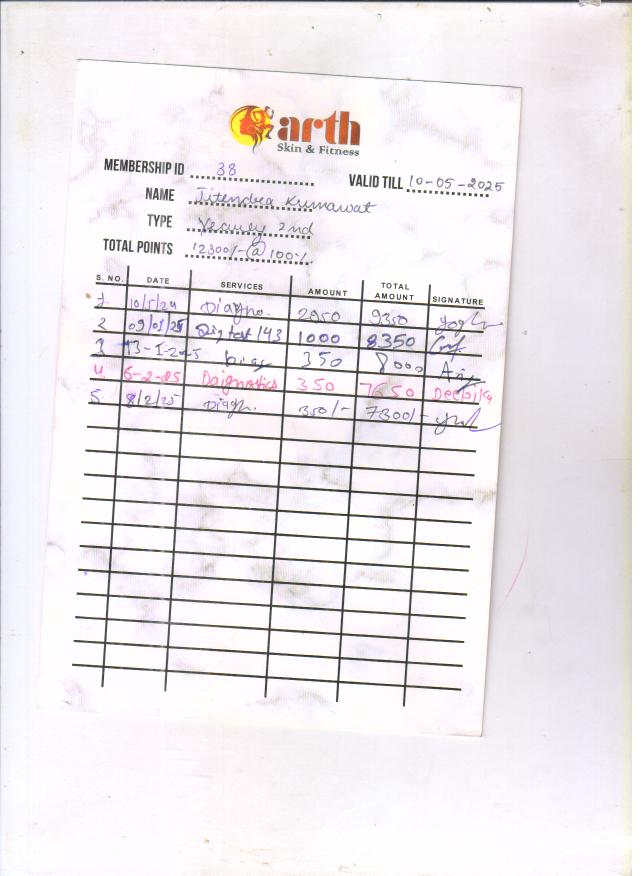 arth
Skin & Fitness
MEMBERSHIP ID 38
VALID TILL 10-05-2025
NAME Jitendra Kumawat
TYPE Yearly 2nd
TOTAL POINTS 12300/-@100%
S. NO. DATE SERVICES AMOUNT TOTAL AMOUNT SIGNATURE
1. 10/5/24 Diagno. 2950 9350
2 09/01/25 1000 8350
3 13-1-2025 Diag 350 8000
4. 6-2-25 Daignostics 350 7650 Deepika
5. 8/2/25 Diagn. 350/- 7300/-